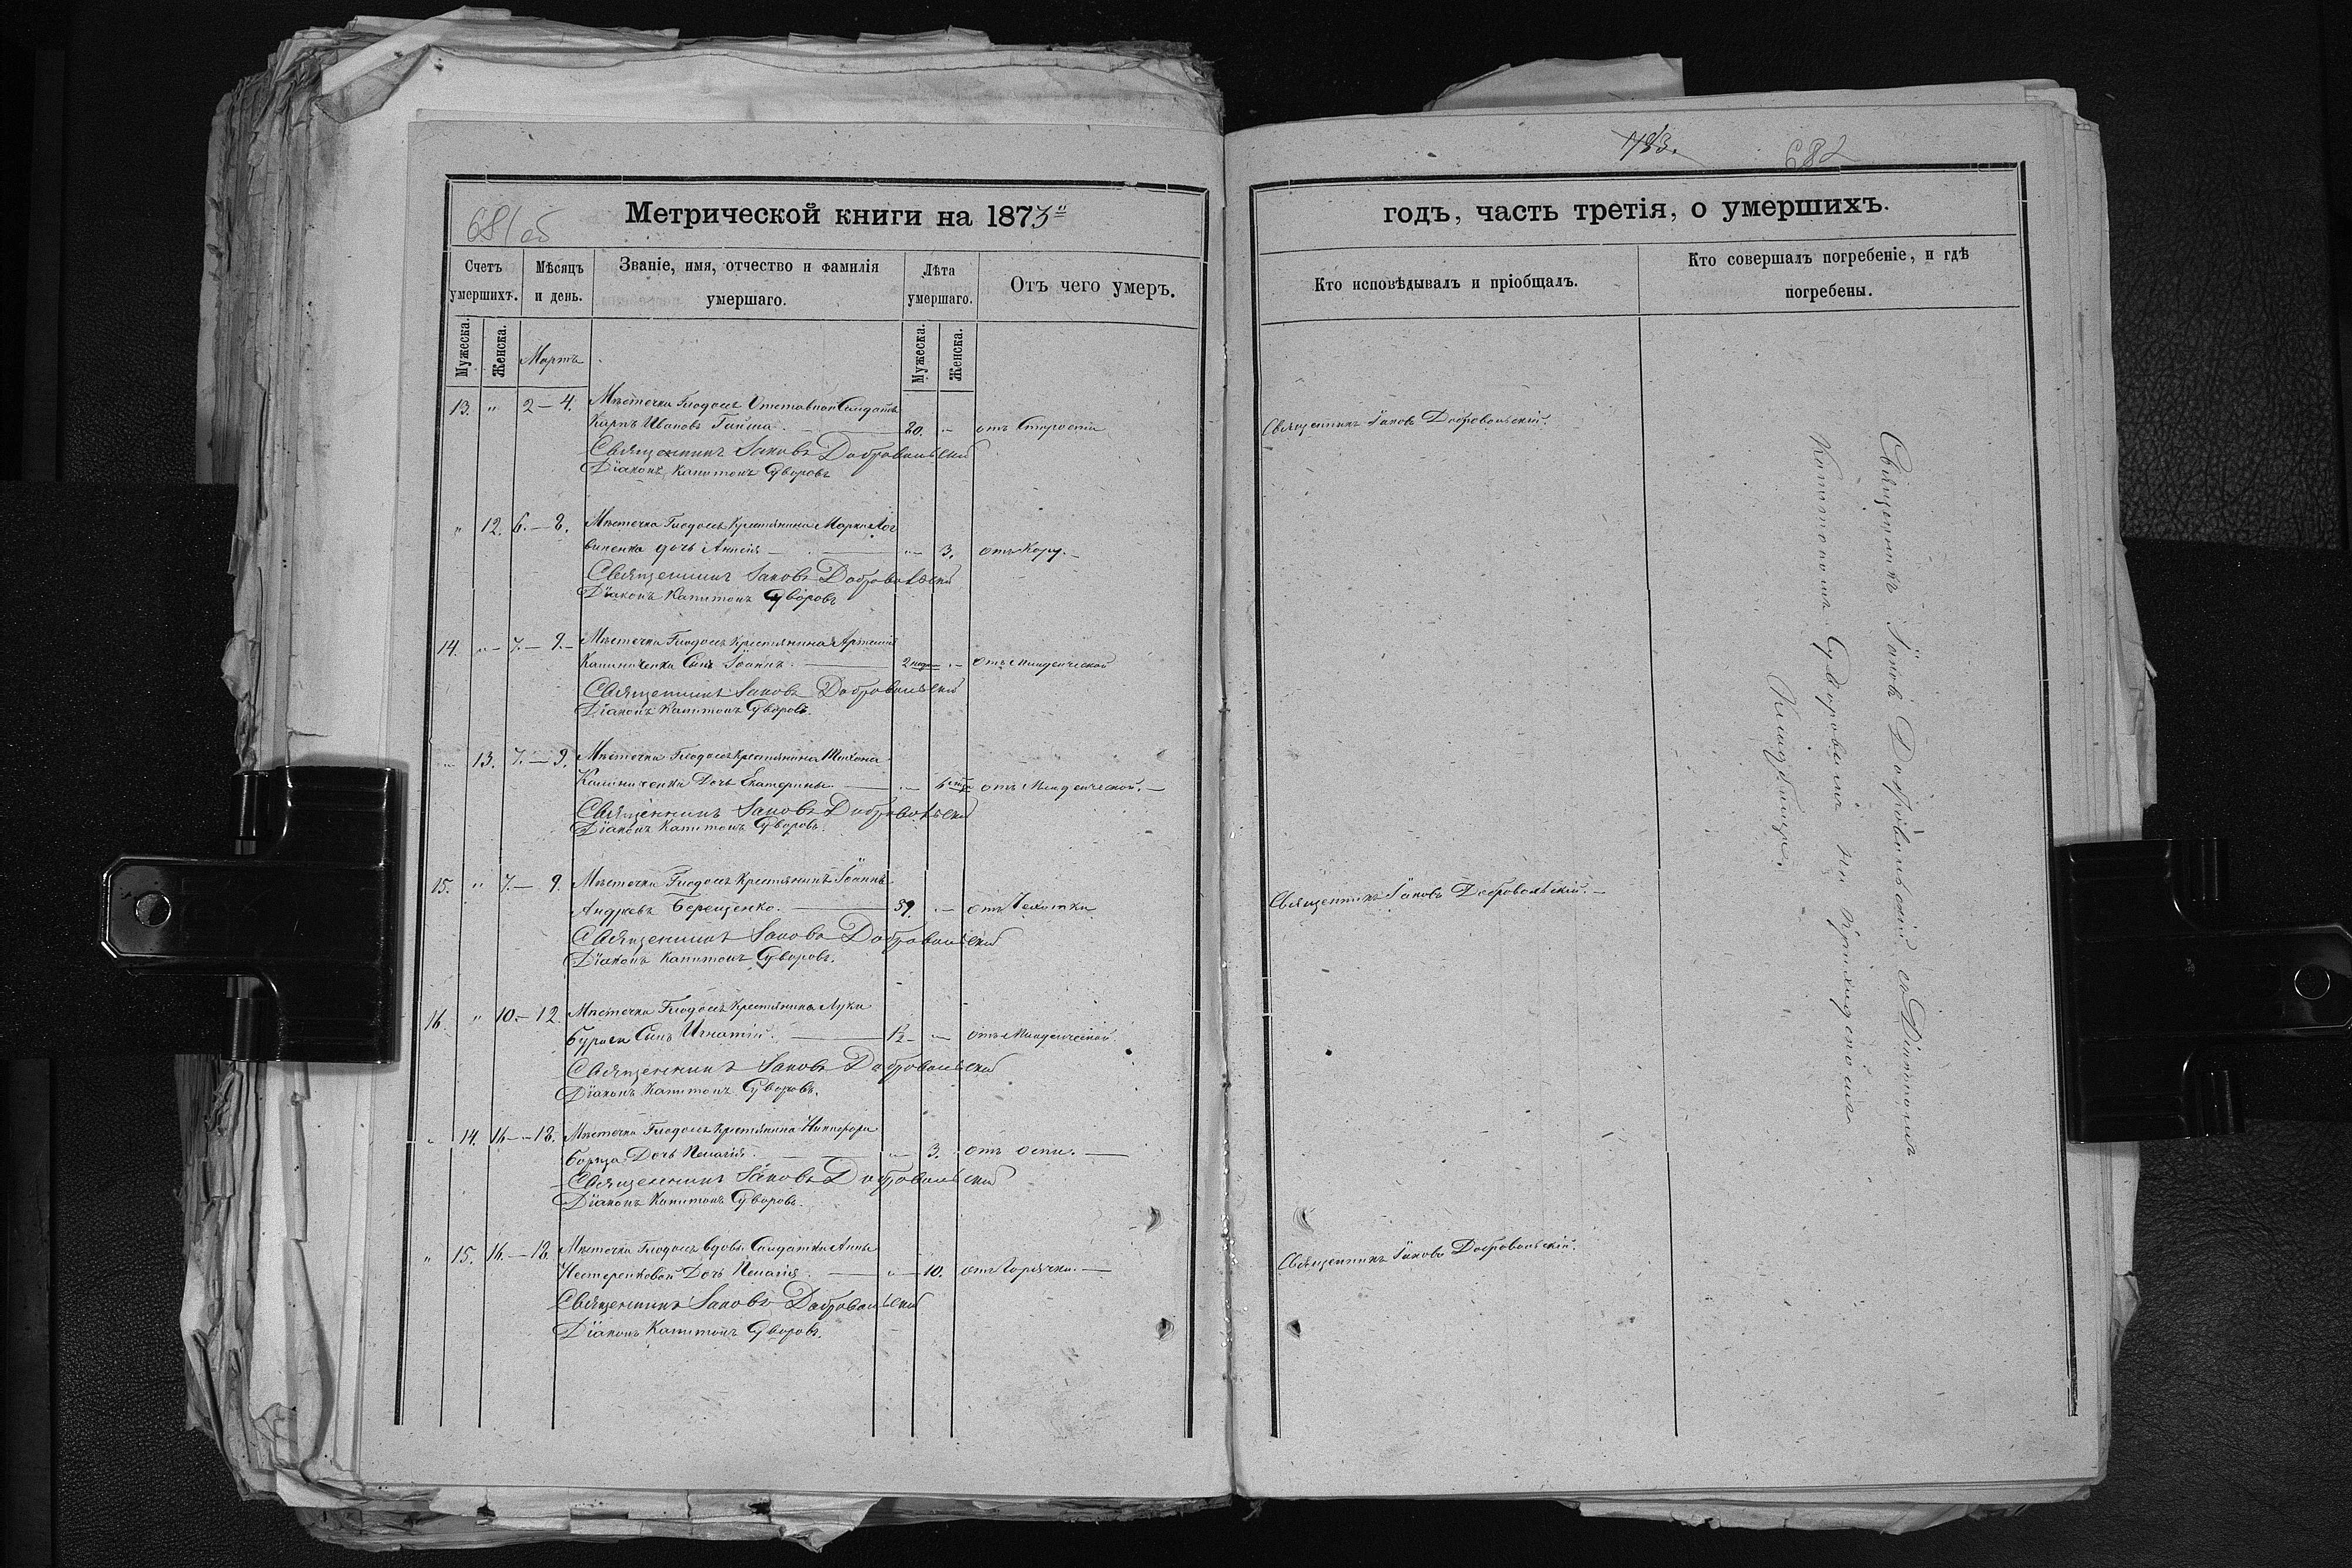 681 об
Метрической книги на 1873й
Счетъ умершихъ.
Мѣсяцъ и день.
Званіе, имя, отчество и фамилія умершаго.
Лѣта умершаго.
Отъ чего умеръ.
Мужеска.
Женска.
Мартъ
Мужеска.
Женска.
13. " 2–4. Мѣстечка Глодосъ Отставной Солдатъ
Карпъ Ивановъ 80. " отъ Старости
Священникъ Іаковъ Добровольскій
Діаконъ Капитонъ Суворовъ
" 12. 6.–8. Мѣстечка Глодосъ Крестянина Марка Лог
виненка дочь 3. отъ Кору.
Священникъ Іаковъ Добровольскій
Діаконъ Капитонъ Суворовъ
14. " 7.–9. Мѣстечка Глодосъ Крестянина
Калиниченка Сынъ Іоаннъ. 2 " отъ Младенческой
Священникъ Іаковъ Добровольскій
Діаконъ Капитонъ Суворовъ.
" 13. 7.–9. Мѣстечка Глодосъ Крестянина Тихона
Калиниченка Дочь Екатерина " 6 отъ Младенческой.
Священникъ Іаковъ Добровольскій
Діаконъ Капитонъ Суворовъ.
15. " 7.–9. Мѣстечка Глодосъ Крестянинъ Іоаннъ
Андреевъ Берещенко. 59. " отъ Чахотки
Священникъ Іаковъ Добровольскій
Діаконъ Капитонъ Суворовъ.
16. " 10.–12. Мѣстечка Глодосъ Крестянина Луки
Сынъ Игнатій. 1/2 " отъ Младенческой.
Священникъ Іаковъ Добровольскій
Діаконъ Капитонъ Суворовъ.
" 14. 16–18. Мѣстечка Глодосъ Крестянина Никифора
Дочь Пелагія. " 3. отъ оспи.
Священникъ Іаковъ Добровольскій
Діаконъ Капитонъ Суворовъ.
" 15. 16.–18. Мѣстечка Глодосъ вдовы Солдатки Анны
Нестеренковой Дочь Пелагія " 10. отъ Горячки.
Священникъ Іаковъ Добровольскій
Діаконъ Капитонъ Суворовъ.
682
годъ, часть третія, о умершихъ.
Кто исповѣдывалъ и пріобщалъ.
Кто совершалъ погребеніе, и гдѣ погребены.
Священникъ Іаковъ Добровольскій.
Священникъ Іаковъ Добровольскій.
Священникъ Іаковъ Добровольскій.
Священникъ Іаковъ Добровольскій съ Діакономъ
Капитономъ Суворовымъ на приходскомъ
Кладбищѣ.